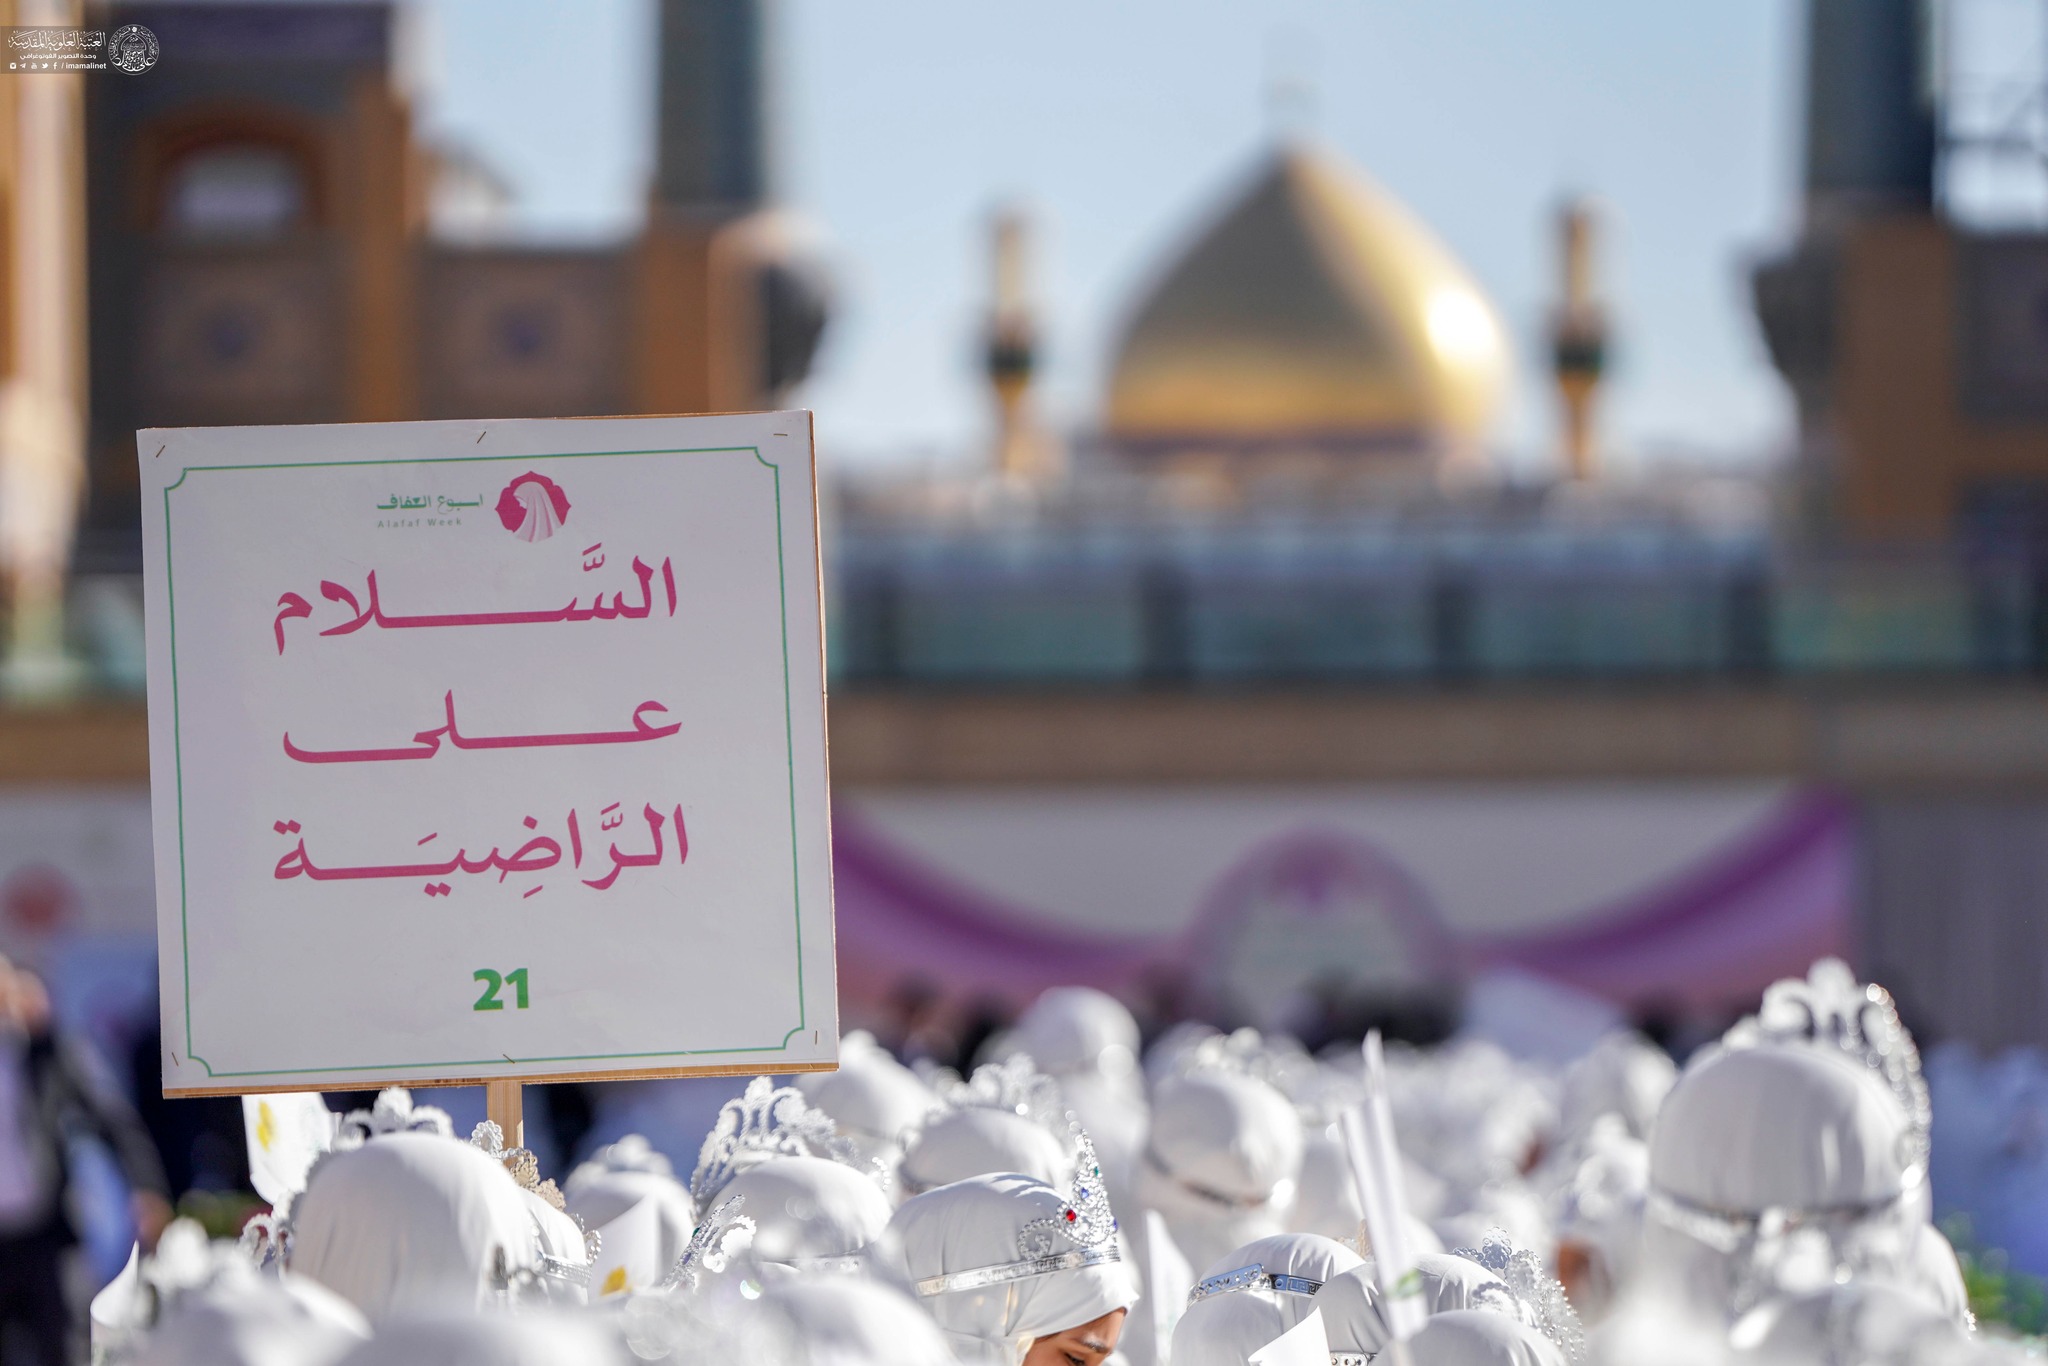 العتبة العلوية المقدسة
وحدة التصوير الفوتوغرافي
/ imamalinet
اسبوع العفاف
Alafaf Week
السَّلام
على
الرَّاضِيَة
21